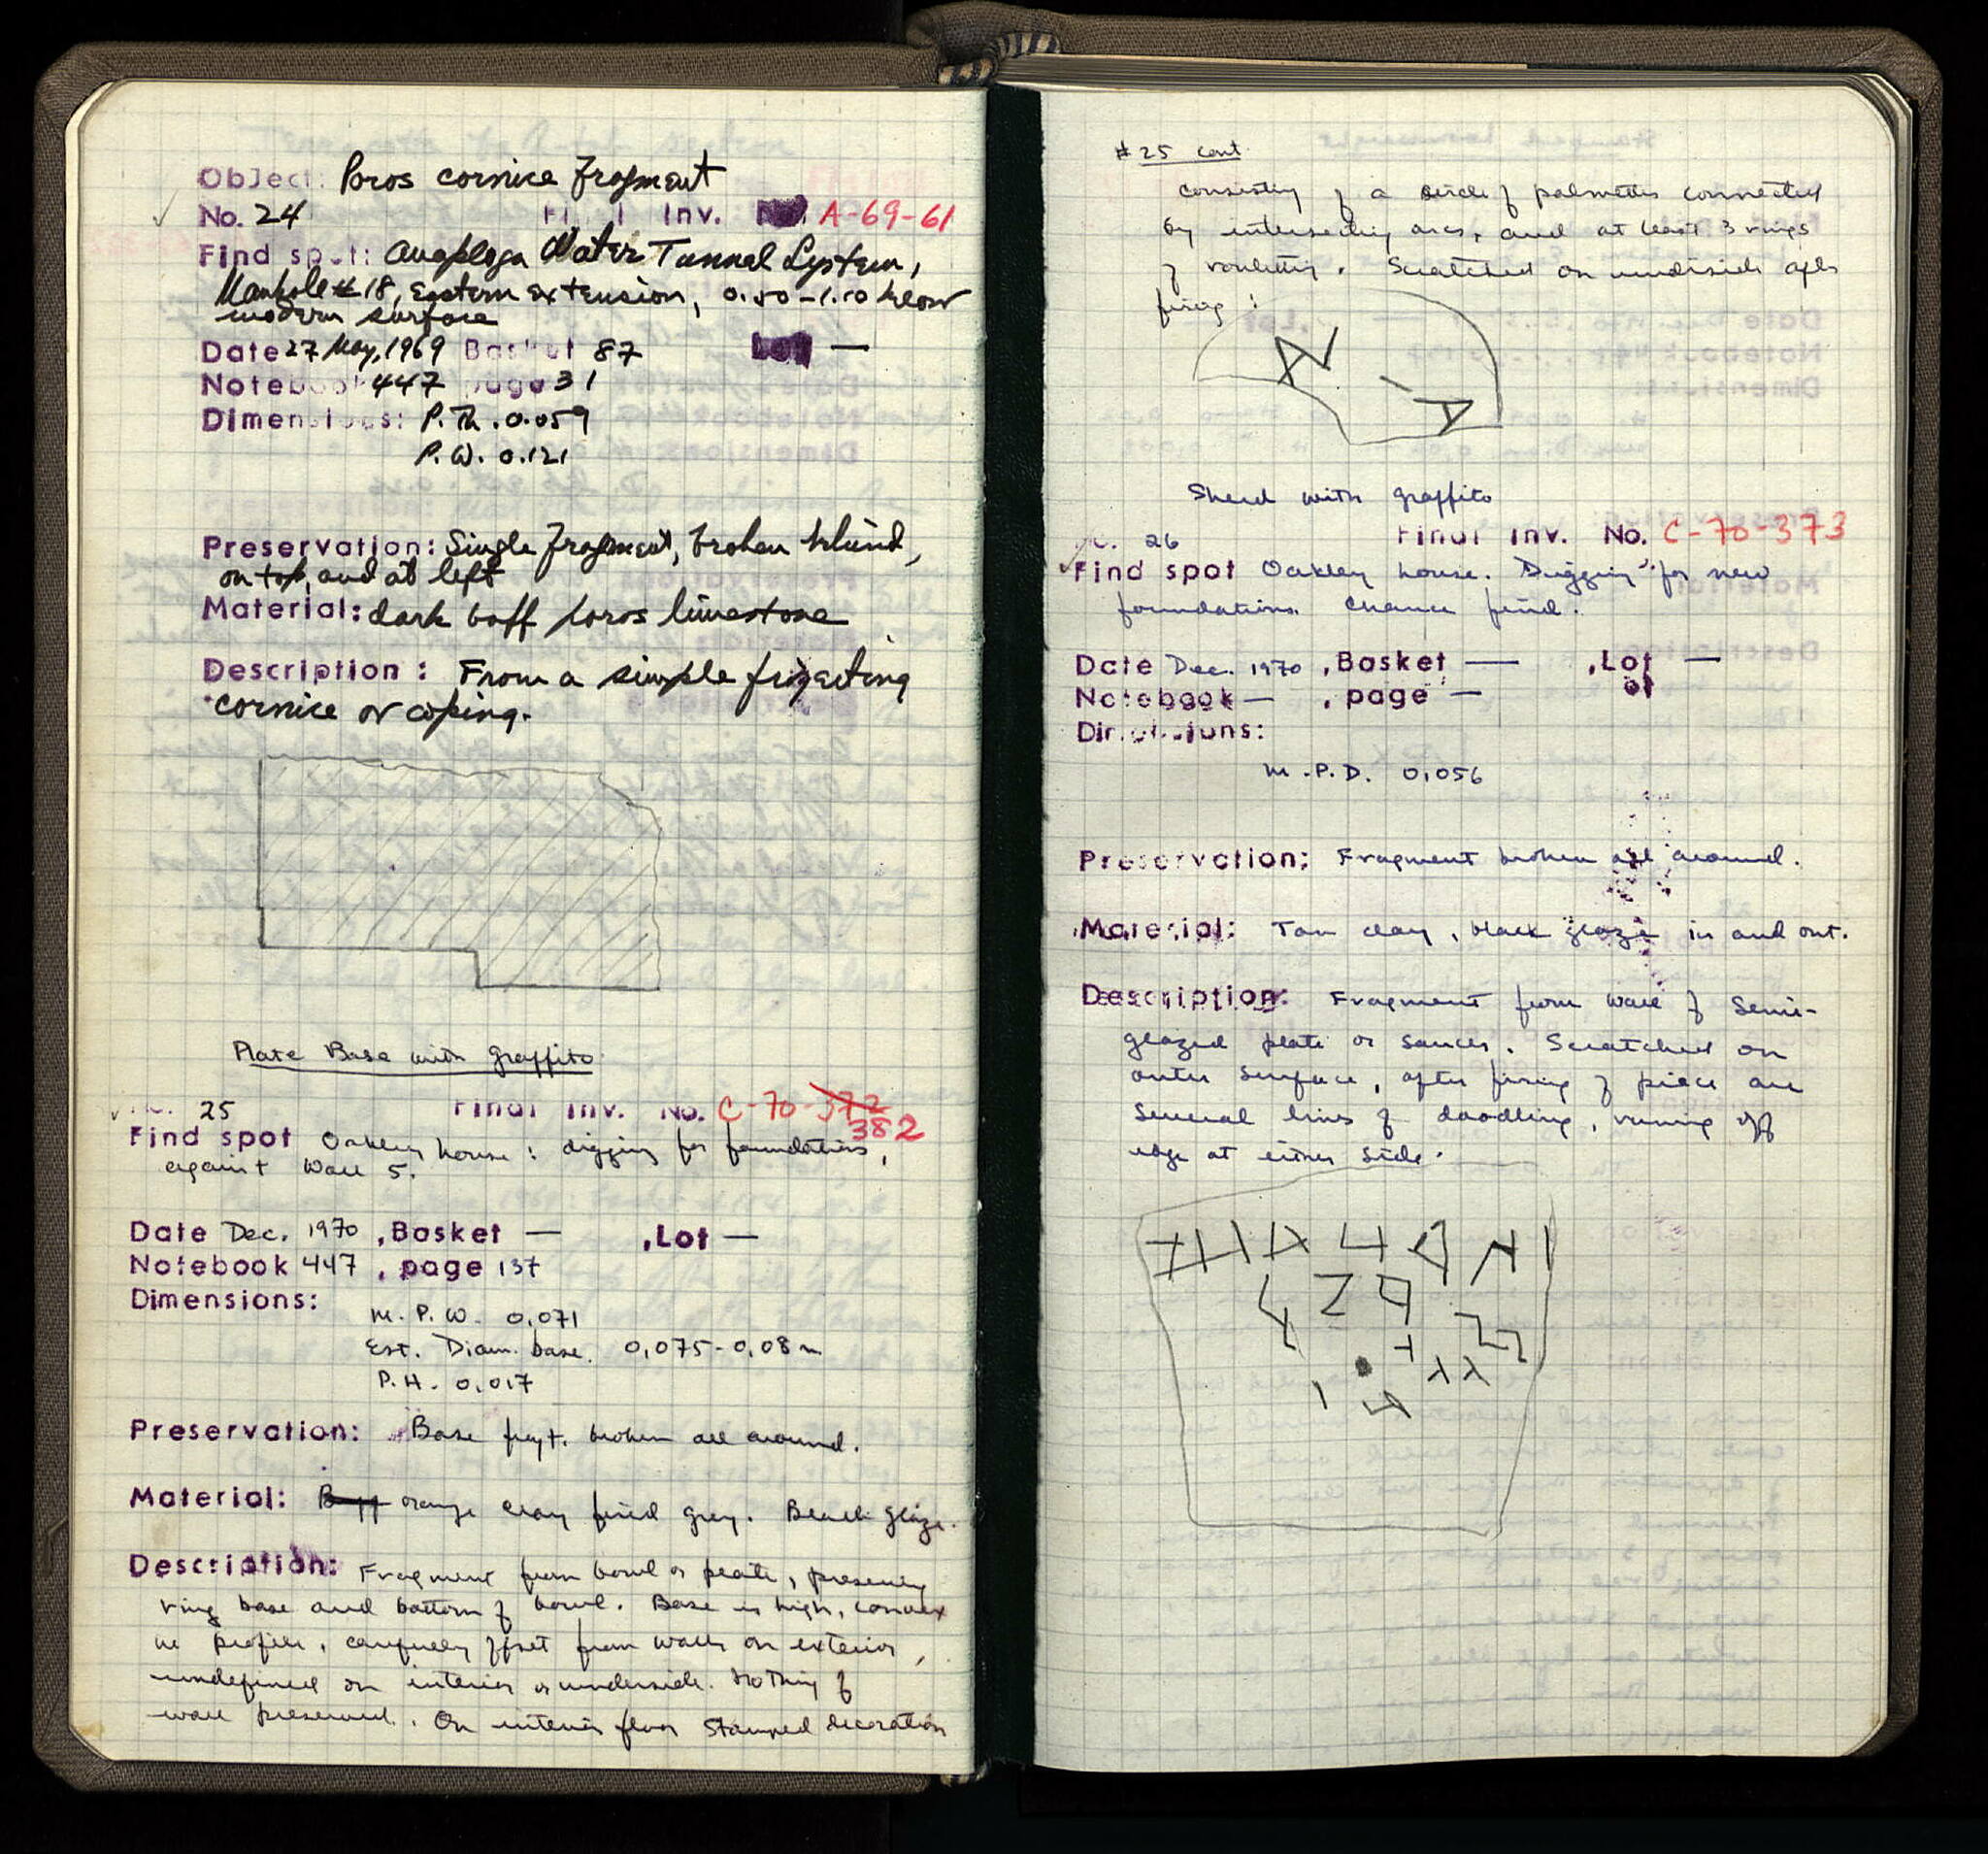 Object: Poros cornice fragment
No. 24 Final Inv. No. A-69-61
Find spot: Anaploga Water Tunnel System,
Manhole #18, Eastern extension, 0.50-1.10 below
modern surface
Date 27 May, 1969 Basket 87 Lot —
Notebook 447 page 31
Dimensions: P.Th. 0.059
P.W. 0.121
Preservation: Single fragment, broken behind,
on top, and at left
Material: dark buff poros limestone
Description: From a simple projecting
cornice or coping.
Plate Base with graffito
No. 25 Final Inv. No. C-70-372
382
Find spot Oakley house: digging for foundations,
against Wall 5.
Date Dec. 1970, Basket — , Lot —
Notebook 447, page 137
Dimensions:
M.P.W. 0,071
Est. Diam. base. 0,075-0,08 m
P.H. 0,017
Preservation: Base fragt. broken all around.
Material: Buff orange clay fired grey. Black glaze.
Description: Fragment from bowl or plate, preserving
ring base and bottom of bowl. Base is high, convex
in profile, carefully offset from walls on exterior,
undefined on interior or underside. Nothing of
wall preserved. On interior floor stamped decoration
#25 cont.
consisting of a circle of palmettes connected
by intersecting arcs, and at least 3 rings
of rouletting. Scratched on underside after
firing:
Sherd with graffito
No. 26 Final Inv. No. C-70-373
Find spot Oakley house. Digging for new
foundations. Chance find.
Date Dec. 1970, Basket — , Lot —
Notebook — , page —
Dimensions:
M.P.D. 0,056
Preservation: Fragment broken all around.
Material: Tan clay, black glaze in and out.
Description: Fragment from wall of semi-
glazed plate or saucer. Scratched on
outer surface, after firing of piece are
several lines of doodling, running off
edge at either side.